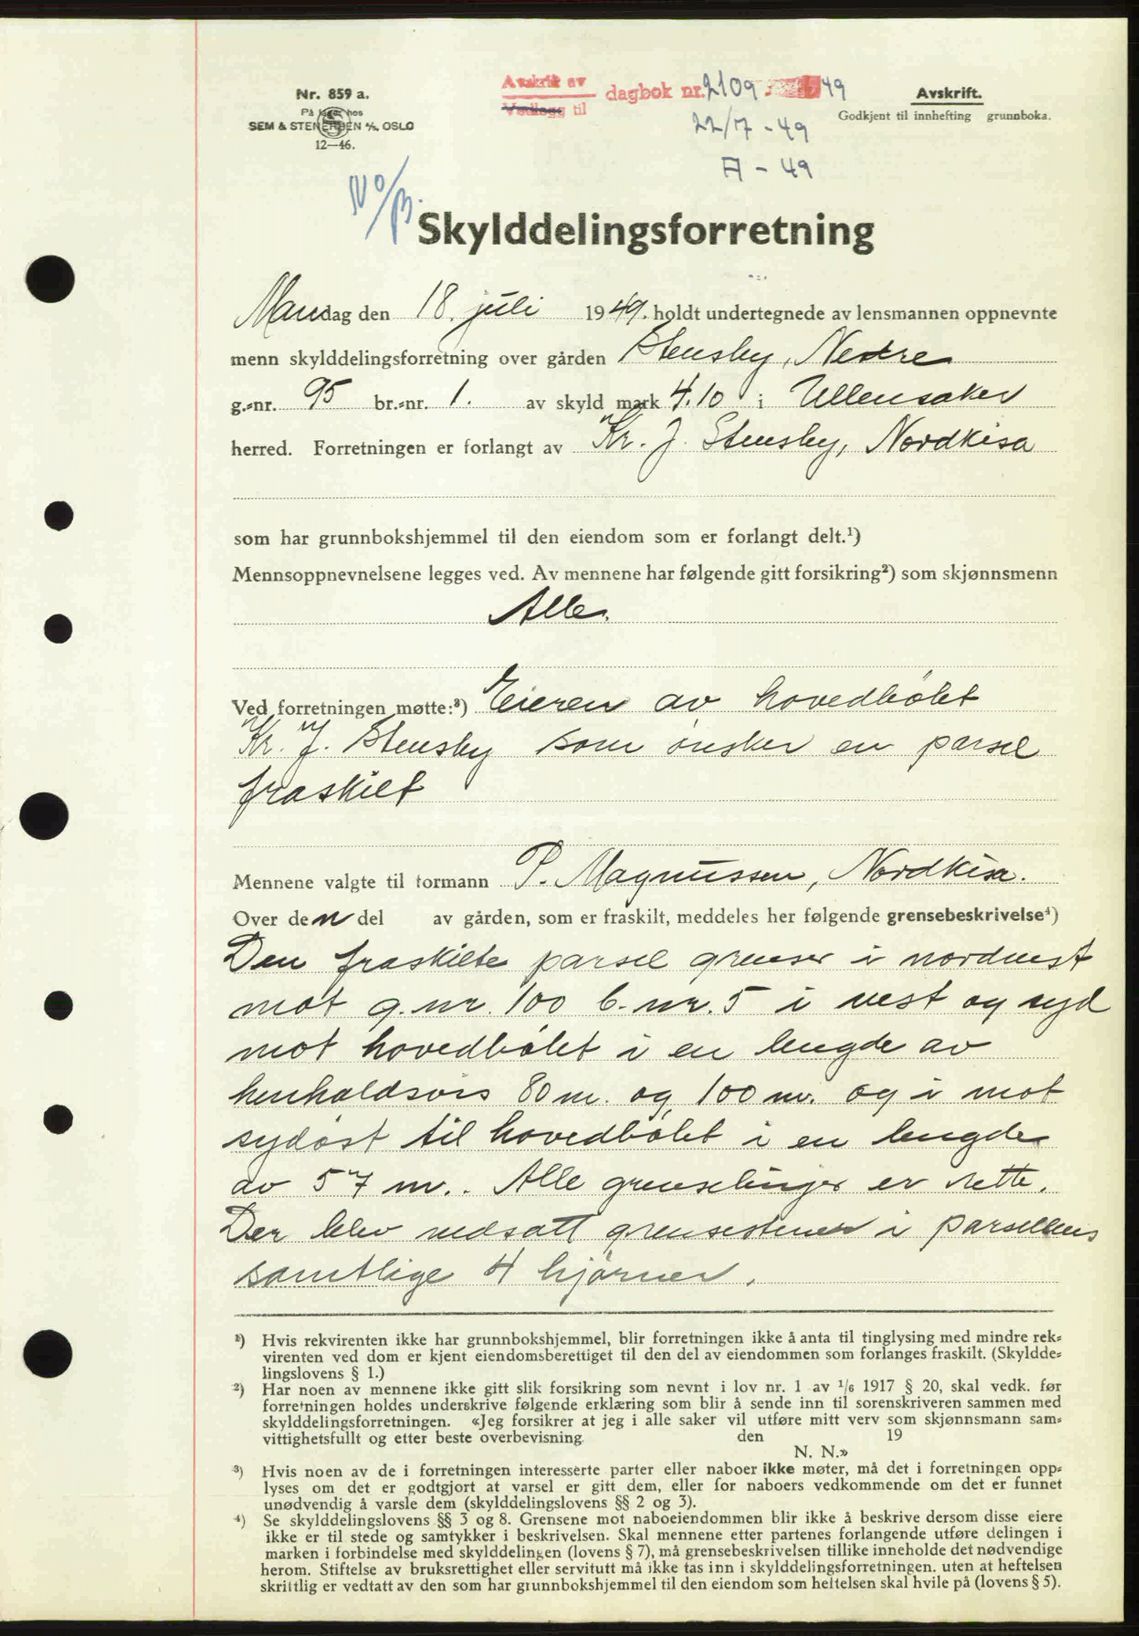 Nr. 859 a.
På lager hos
SEM & STENERSEN A/S. OSLO
12—46.
Avskrift av
Vedlegg til
dagbok nr. 2109 49
22/7 - 49
A - 49
Avskrift.
Godkjent til innhefting grunnboka.
Skylddelingsforretning
Mandag den 18. juli 1949. holdt undertegnede av lensmannen oppnevnte
menn skylddelingsforretning over gården Stensby, Nedre
g.=nr. 95 br.=nr. 1. av skyld mark 4.10 i Ullensaker
herred. Forretningen er forlangt av Kr. J. Stensby, Nordkisa
som har grunnbokshjemmel til den eiendom som er forlangt delt.¹)
Mennsoppnevnelsene legges ved. Av mennene har følgende gitt forsikring²) som skjønnsmenn
Alle.
Ved forretningen møtte:³) Eieren av hovedbölet
Kr. J. Stensby som ønsker en parsel
fraskilt
Mennene valgte til formann P. Magnussen, Nordkisa.
Over den del av gården, som er fraskilt, meddeles her følgende grensebeskrivelse⁴)
Den fraskilte parsel grenser i nordvest
mot g.nr. 100 b.nr. 5 i vest og syd
mot hovedbölet i en lengde av
henholdsvis 80 m. og 100 m. og i mot
sydöst til hovedbölet i en lengde
av 57 m.. Alle grenselinjer er rette.
Der blev nedsatt grensestener i parsellens
samtlige 4 hjörner.
¹) Hvis rekvirenten ikke har grunnbokshjemmel, blir forretningen ikke å anta til tinglysing med mindre rek=
virenten ved dom er kjent eiendomsberettiget til den del av eiendommen som forlanges fraskilt. (Skyldde=
lingslovens § 1.)
²) Har noen av mennene ikke gitt slik forsikring som nevnt i lov nr. 1 av 1/6 1917 § 20, skal vedk. før
forretningen holdes underskrive følgende erklæring som blir å sende inn til sorenskriveren sammen med
skylddelingsforretningen. «Jeg forsikrer at jeg i alle saker vil utføre mitt verv som skjønnsmann sam=
vittighetsfullt og etter beste overbevisning den 19
N. N.»
³) Hvis noen av de i forretningen interesserte parter eller naboer ikke møter, må det i forretningen opp=
lyses om det er godtgjort at varsel er gitt dem, eller for naboers vedkommende om det er funnet
unødvendig å varsle dem (skylddelingslovens §§ 2 og 3).
⁴) Se skylddelingslovens §§ 3 og 8. Grensene mot naboeiendommen blir ikke å beskrive dersom disse eiere
ikke er til stede og samtykker i beskrivelsen. Skal mennene etter partenes forlangende utføre delingen i
marken i forbindelse med skylddelingen (lovens § 7), må grensebeskrivelsen tillike inneholde det nødvendige
herom. Stiftelse av bruksrettighet eller servitutt må ikke tas inn i skylddelingsforretningen. uten at heftelsen
skriftlig er vedtatt av den som har grunnbokshjemmel til den eiendom som heftelsen skal hvile på (lovens § 5).